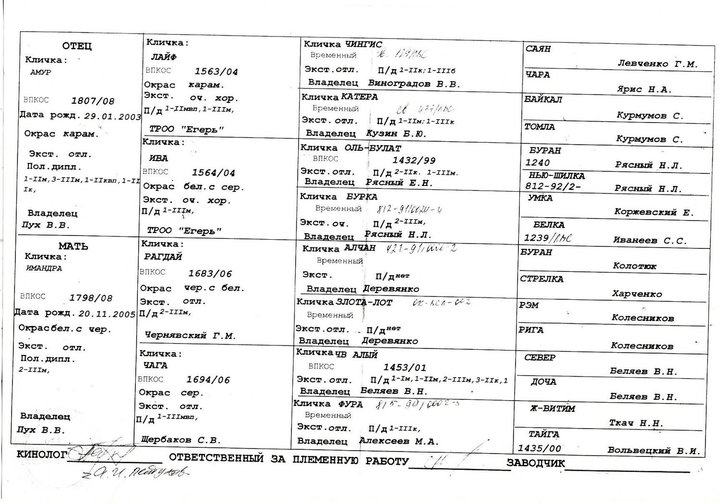 ОТЕЦ
Кличка:
АМУР
ВПКОС 1807/08
Дата рожд. 29.01.2003
Окрас карам.
Экст. отл.
Пол.дипл.
1-IIм,3-IIIм,1-IIквп,1-II
Iк,
Владелец
Пух В.В.
МАТЬ
Кличка:
ИМАНДРА
ВПКОС 1798/08
Дата рожд. 20.11.2005
Окрасбел.с чер.
Экст. отл.
Пол.дипл.
2-IIIм,
Владелец
Пух В.В.
Кличка:
ЛАЙФ
ВПКОС 1563/04
Окрас карам.
Экст. оч. хор.
П/д 1-IIмвп,1-IIIм,
ТРОО "Егерь"
Кличка:
ИВА
ВПКОС 1564/04
Окрас бел.с сер.
Экст. оч. хор.
П/д 1-IIIм,
ТРОО "Егерь"
Кличка:
РАГДАЙ
ВПКОС 1683/06
Окрас чер.с бел.
Экст. отл.
П/д 2-IIIм,
Чернявский Г.М.
Кличка:
ЧАГА
ВПКОС 1694/06
Окрас сер.
Экст. отл.
П/д 1-IIIмвп,
Щербаков С.В.
Кличка ЧИНГИС
Временный
Экст.отл. П/д 1-IIк;1-IIIб
Владелец Виноградов В.В.
Кличка КАТЕРА
Временный
Экст.отл. П/д 1-IIм;1-IIIк
Владелец Кузин Б.Ю.
Кличка ОЛЬ-БУЛАТ
ВПКОС 1432/99
Экст.отл. П/д 2-IIк. 1-IIIм.
Владелец Рясный Е.Н.
Кличка БУРКА
Временный
Экст.оч. П/д 2-IIIм,
Владелец Рясный Н.Л.
Кличка АЛЧАН
Временный
Экст. П/д нет
Владелец Деревянко
Кличка ЗЛОТА-ЛОТ
Временный
Экст.отл. П/д нет
Владелец Деревянко
Кличка ЧВ АЛЫЙ
ВПКОС 1453/01
Экст.отл. П/д 1-Iм,1-IIм,2-IIIм,3-IIк,1
Владелец Беляев В.Н.
Кличка ФУРА
Временный
Экст.отл. П/д 1-IIIк,
Владелец Алексеев М.А.
САЯН
Левченко Г.М.
ЧАРА
Ярис Н.А.
БАЙКАЛ
Курмумов С.
ТОМЛА
Курмумов С.
БУРАН
1240 Рясный Н.Л.
НЬЮ-ШИЛКА
812-92/2- Рясный Н.Л.
УМКА
Коржевский Е.
БЕЛКА
1239/ Иванеев С.С.
БУРАН
Колотюк
СТРЕЛКА
Харченко
РЭМ
Колесников
РИГА
Колесников
СЕВЕР
Беляев В.Н.
ДОЧА
Беляев В.Н.
Ж-ВИТИМ
Ткач Н.Н.
ТАЙГА
1435/00 Вольвецкий В.И.
КИНОЛОГ ОТВЕТСТВЕННЫЙ ЗА ПЛЕМЕННУЮ РАБОТУ ЗАВОДЧИК